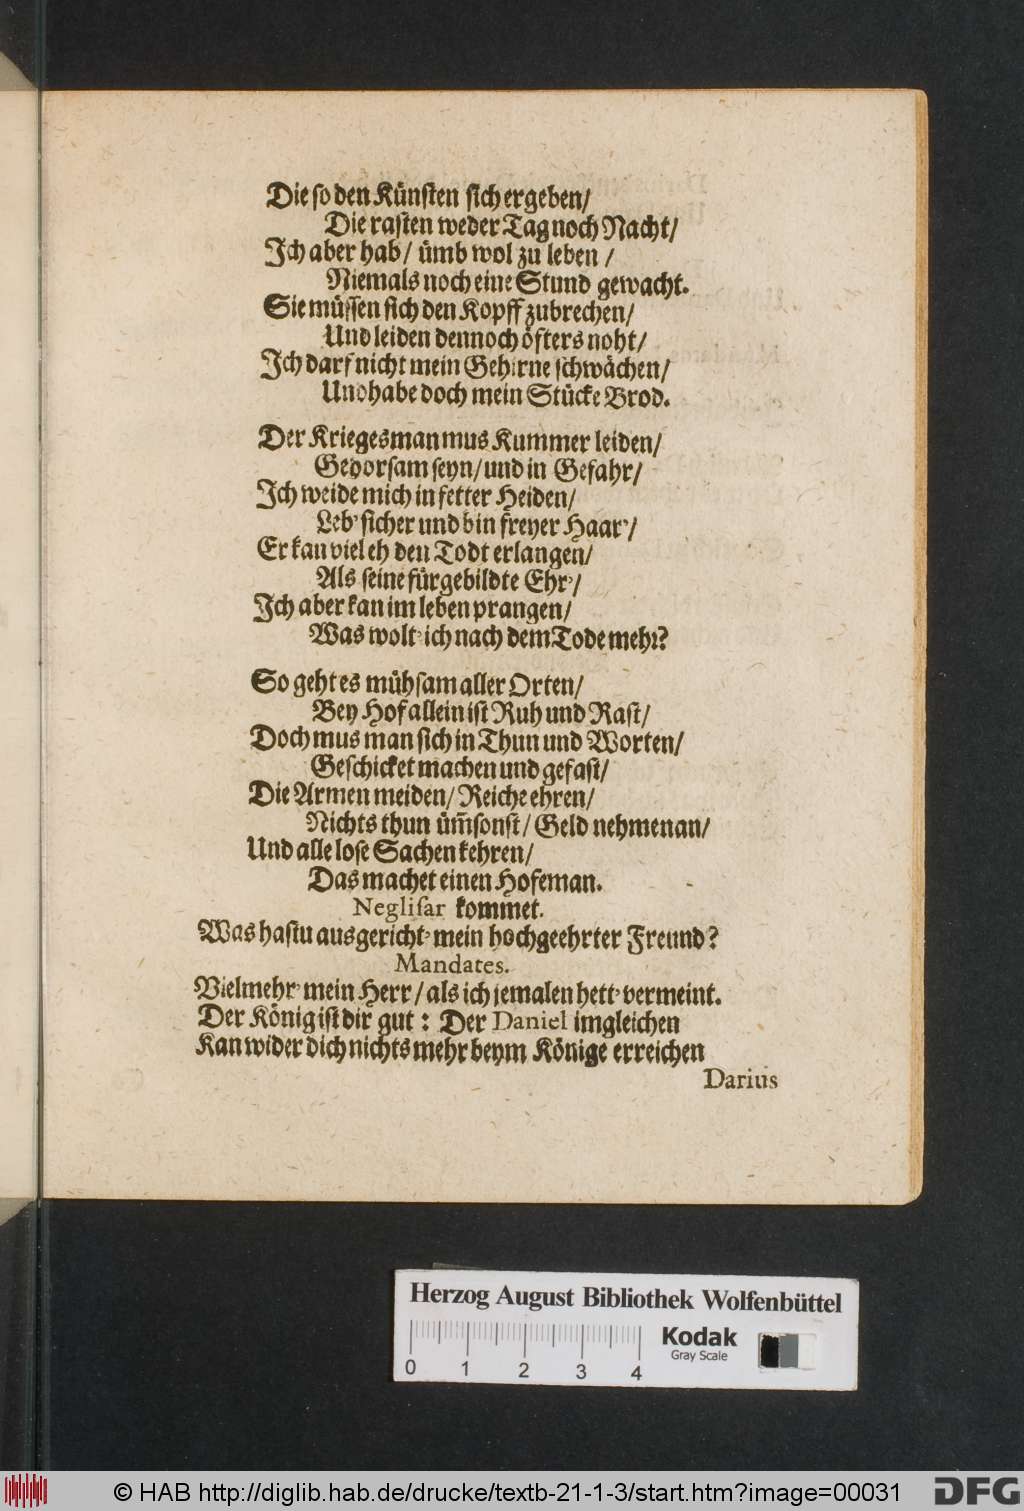 Die so den Künsten sich ergeben/
Die rasten weder Tag noch Nacht/
Ich aber hab/ ümb wol zu leben /
Niemals noch eine Stund gewacht.
Sie müssen sich den Kopff zubrechen/
Und leiden dennoch öfters noht/
Ich darf nicht mein Gehirne schwächen/
Und habe doch mein Stücke Brod.
Der Kriegesman mus Kummer leiden/
Gehorsam seyn/ und in Gefahr/
Ich weide mich in fetter Heiden/
Leb' sicher und bin freyer Haar'/
Er kan viel eh den Todt erlangen/
Als seine fürgebildte Ehr'/
Ich aber kan im leben prangen/
Was wolt' ich nach dem Tode mehr?
So geht es mühsam aller Orten/
Bey Hof allein ist Ruh und Rast/
Doch mus man sich in Thun und Worten/
Geschicket machen und gefast/
Die Armen meiden/ Reiche ehren/
Nichts thun üm̃sonst/ Geld nehmen an/
Und alle lose Sachen kehren/
Das machet einen Hofeman.
Neglisar kommet.
Was hastu ausgericht' mein hochgeehrter Freund?
Mandates.
Vielmehr' mein Herr/ als ich jemalen hett' vermeint.
Der König ist dir gut: Der Daniel imgleichen
Kan wider dich nichts mehr beym Könige erreichen
Darius
Herzog August Bibliothek Wolfenbüttel
Kodak
Gray Scale
0 1 2 3 4
© HAB http://diglib.hab.de/drucke/textb-21-1-3/start.htm?image=00031
DFG